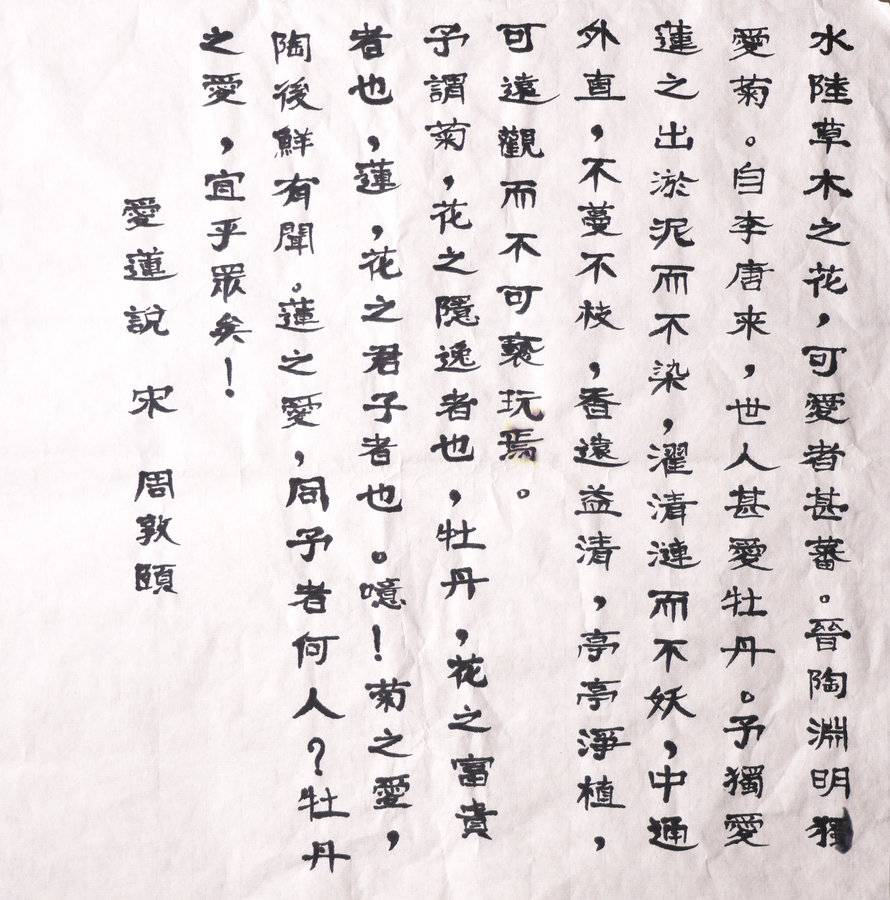 水陸草木之花，可愛者甚蕃。晉陶淵明獨
愛菊。自李唐來，世人甚愛牡丹。予獨愛
蓮之出淤泥而不染，濯清漣而不妖，中通
外直，不蔓不枝，香遠益清，亭亭淨植，
可遠觀而不可褻玩焉。
予謂菊，花之隱逸者也，牡丹，花之富貴
者也，蓮，花之君子者也。噫！菊之愛，
陶後鮮有聞。蓮之愛，同予者何人？牡丹
之愛，宜乎眾矣！
愛蓮說 宋 周敦頤